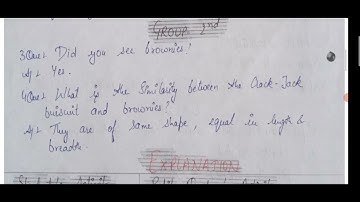 GROUP 2nd
3Que+ Did you see brownies?
Yes.
4Que+ What is the Similarity between the Crack-Jack
buisuit and brownies?
They are of same shape, equal in length &
breadth.
EXPLANATION